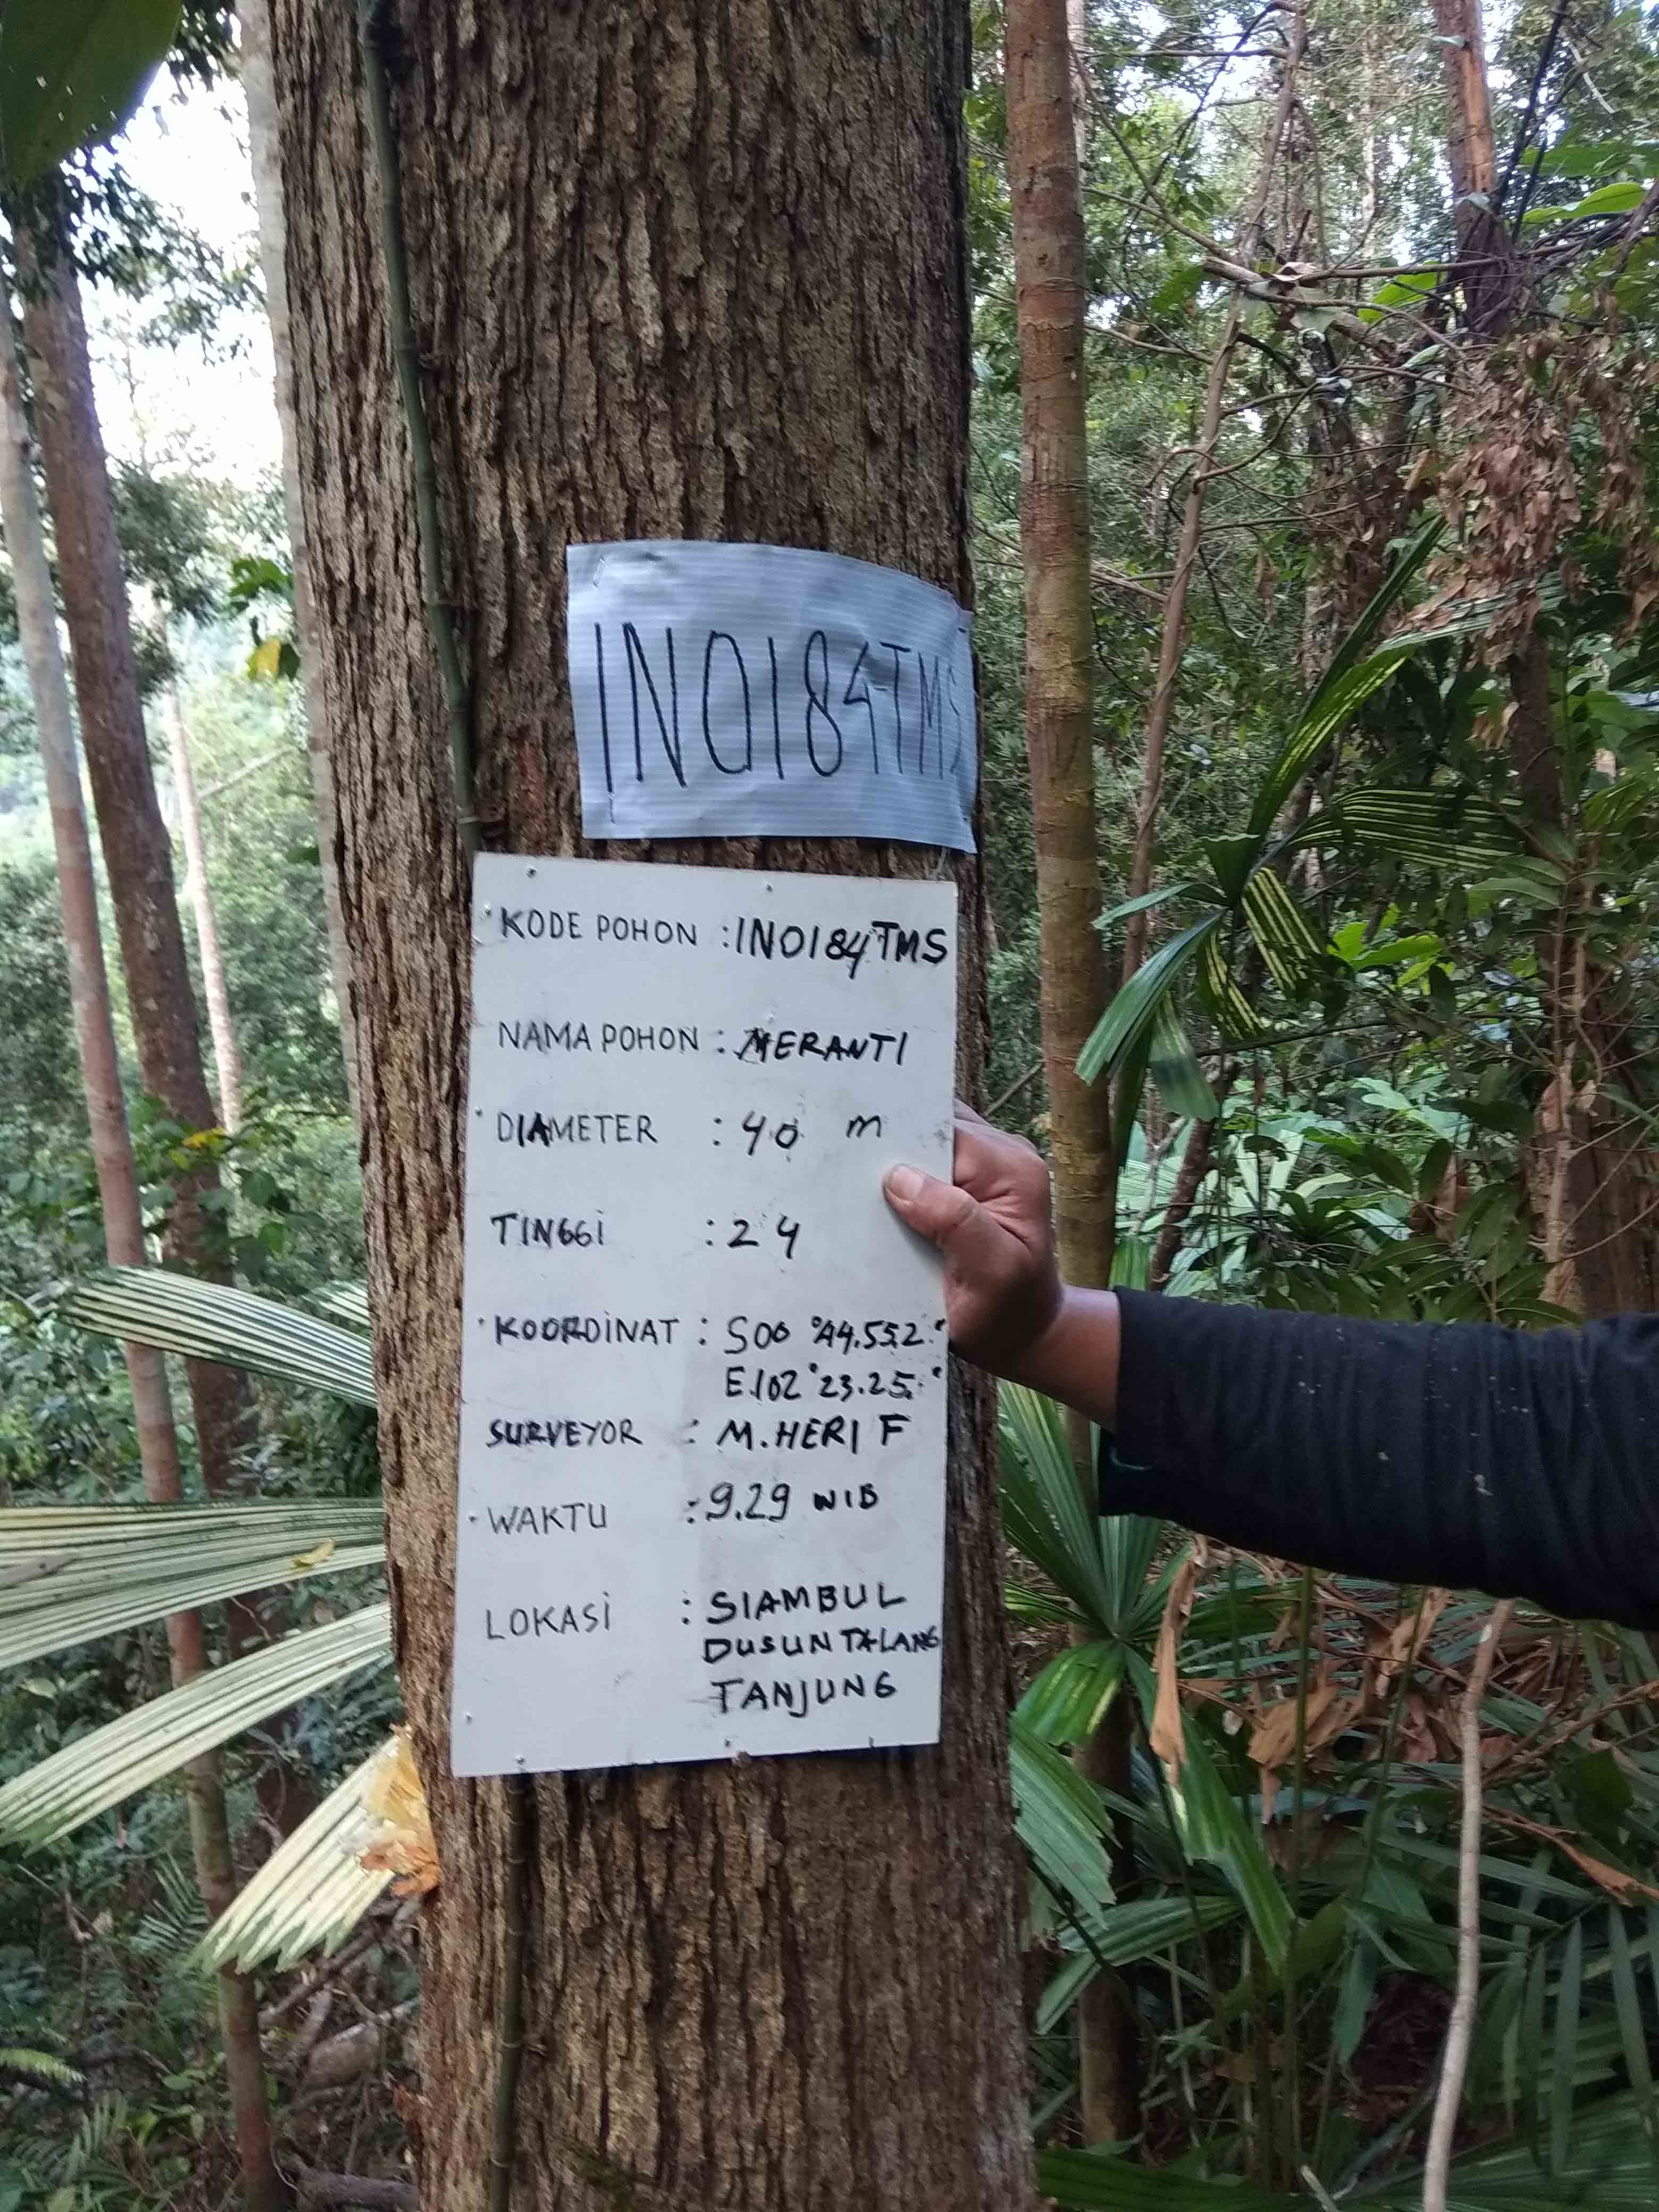 IN0184TMS
KODE POHON : IN0184TMS
NAMA POHON : MERANTI
DIAMETER : 40 m
TINGGI : 24
KOORDINAT : S00 °44.552"
E.102°23.25."
SURVEYOR : M.HERI F
WAKTU : 9.29 WIB
LOKASI : SIAMBUL
DUSUN TALANG
TANJUNG